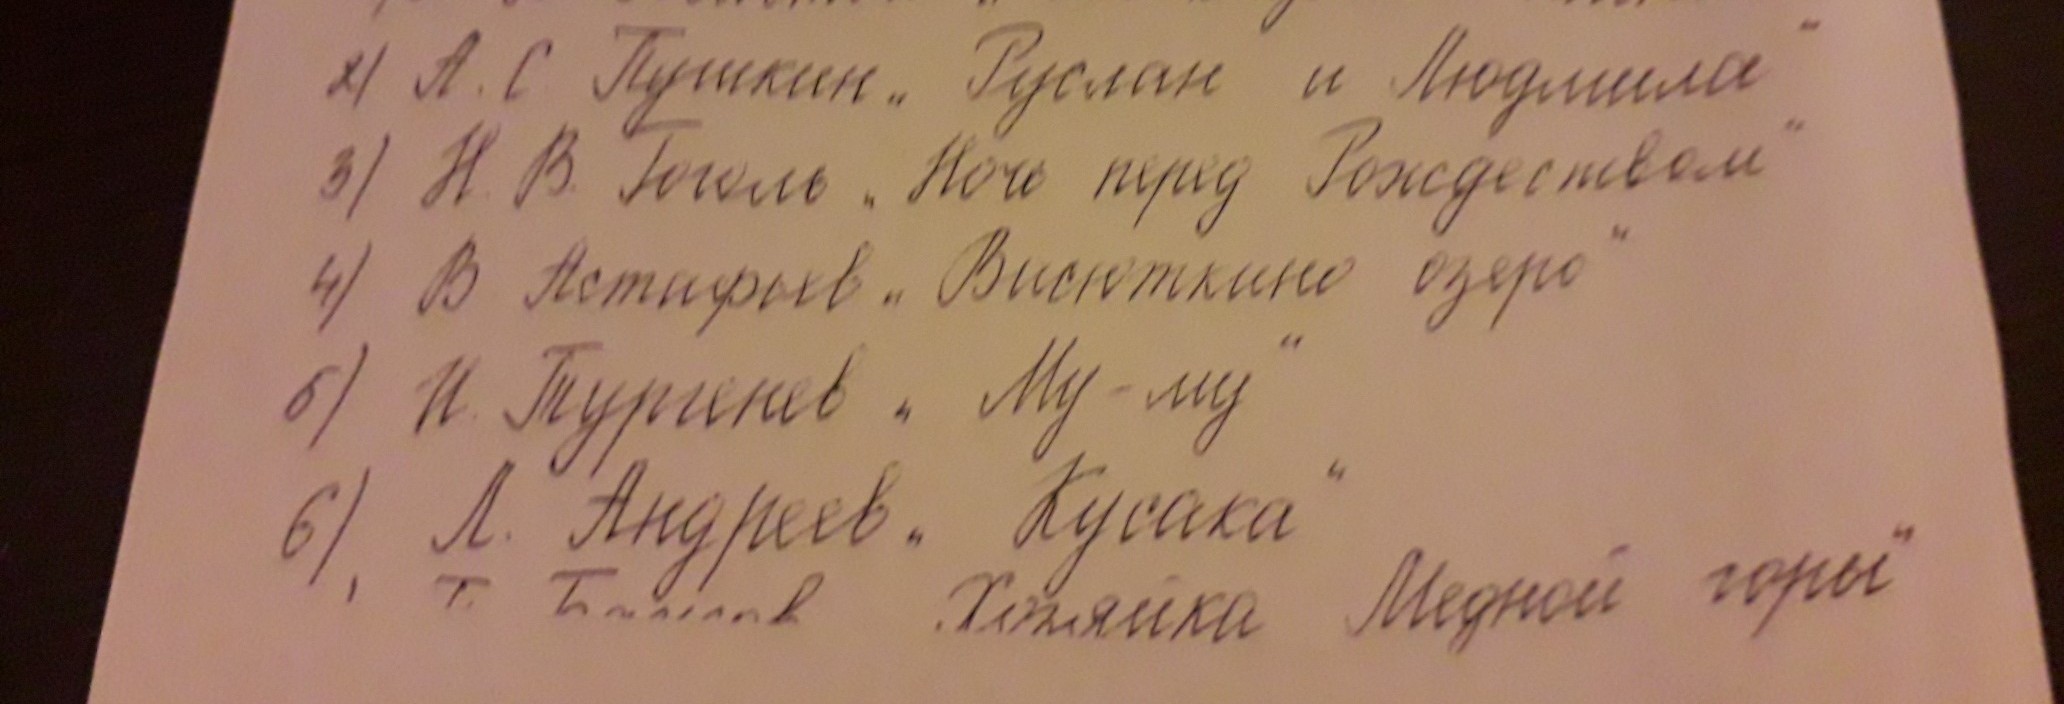 2) А. С. Пушкин „Руслан и Людмила"
3) Н. В. Гоголь „Ночь перед Рождеством"
4) В Астафьев „Висюткино озеро"
5) И. Тургенев „Му-му"
6) Л. Андреев „Кусака"
Хозяйка Медной горы"